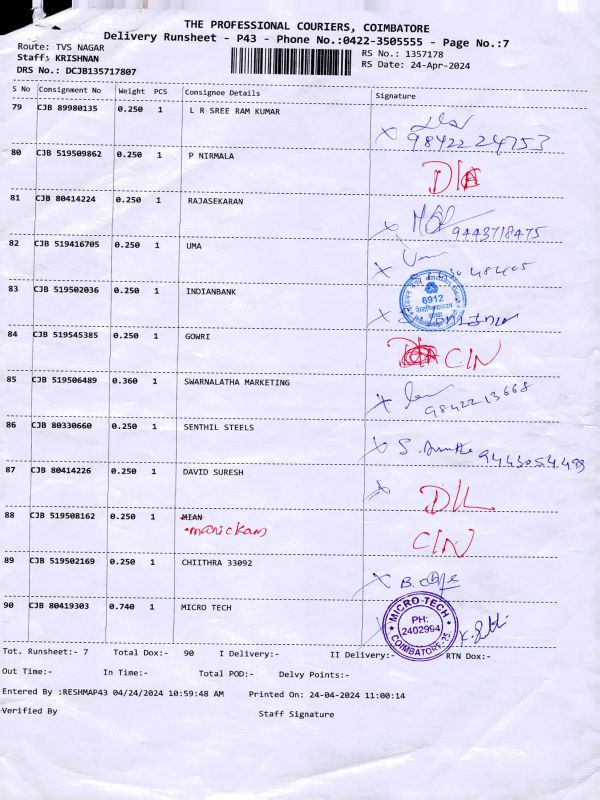 THE PROFESSIONAL COURIERS, COIMBATORE
Delivery Runsheet - P43 - Phone No.:0422-3505555 - Page No.:7
Route: TVS NAGAR RS No.: 1357178
Staff: KRISHNAN RS Date: 24-Apr-2024
DRS No.: DCJB135717807
S No Consignment No Weight PCS Consignee Details Signature
79 CJB 89980135 0.250 1 L R SREE RAM KUMAR
98422 24753
80 CJB 519509862 0.250 1 P NIRMALA
81 CJB 80414224 0.250 1 RAJASEKARAN
9443718475
82 CJB 519416705 0.250 1 UMA
83 CJB 519502036 0.250 1 INDIANBANK
6912
84 CJB 519545385 0.250 1 GOWRI
CIN
85 CJB 519506489 0.360 1 SWARNALATHA MARKETING
9842213668
86 CJB 80330660 0.250 1 SENTHIL STEELS
87 CJB 80414226 0.250 1 DAVID SURESH
D/L
88 CJB 519508162 0.250 1 MIAN
manickam
CIN
89 CJB 519502169 0.250 1 CHIITHRA 33092
90 CJB 80419303 0.740 1 MICRO TECH
MICRO-TECH
PH:
2402994
COIMBATORE-25
Tot. Runsheet:- 7 Total Dox:- 90 I Delivery:- II Delivery:- RTN Dox:-
Out Time:- In Time:- Total POD:- Delvy Points:-
Entered By :RESHMAP43 04/24/2024 10:59:48 AM Printed On: 24-04-2024 11:00:14
Verified By Staff Signature